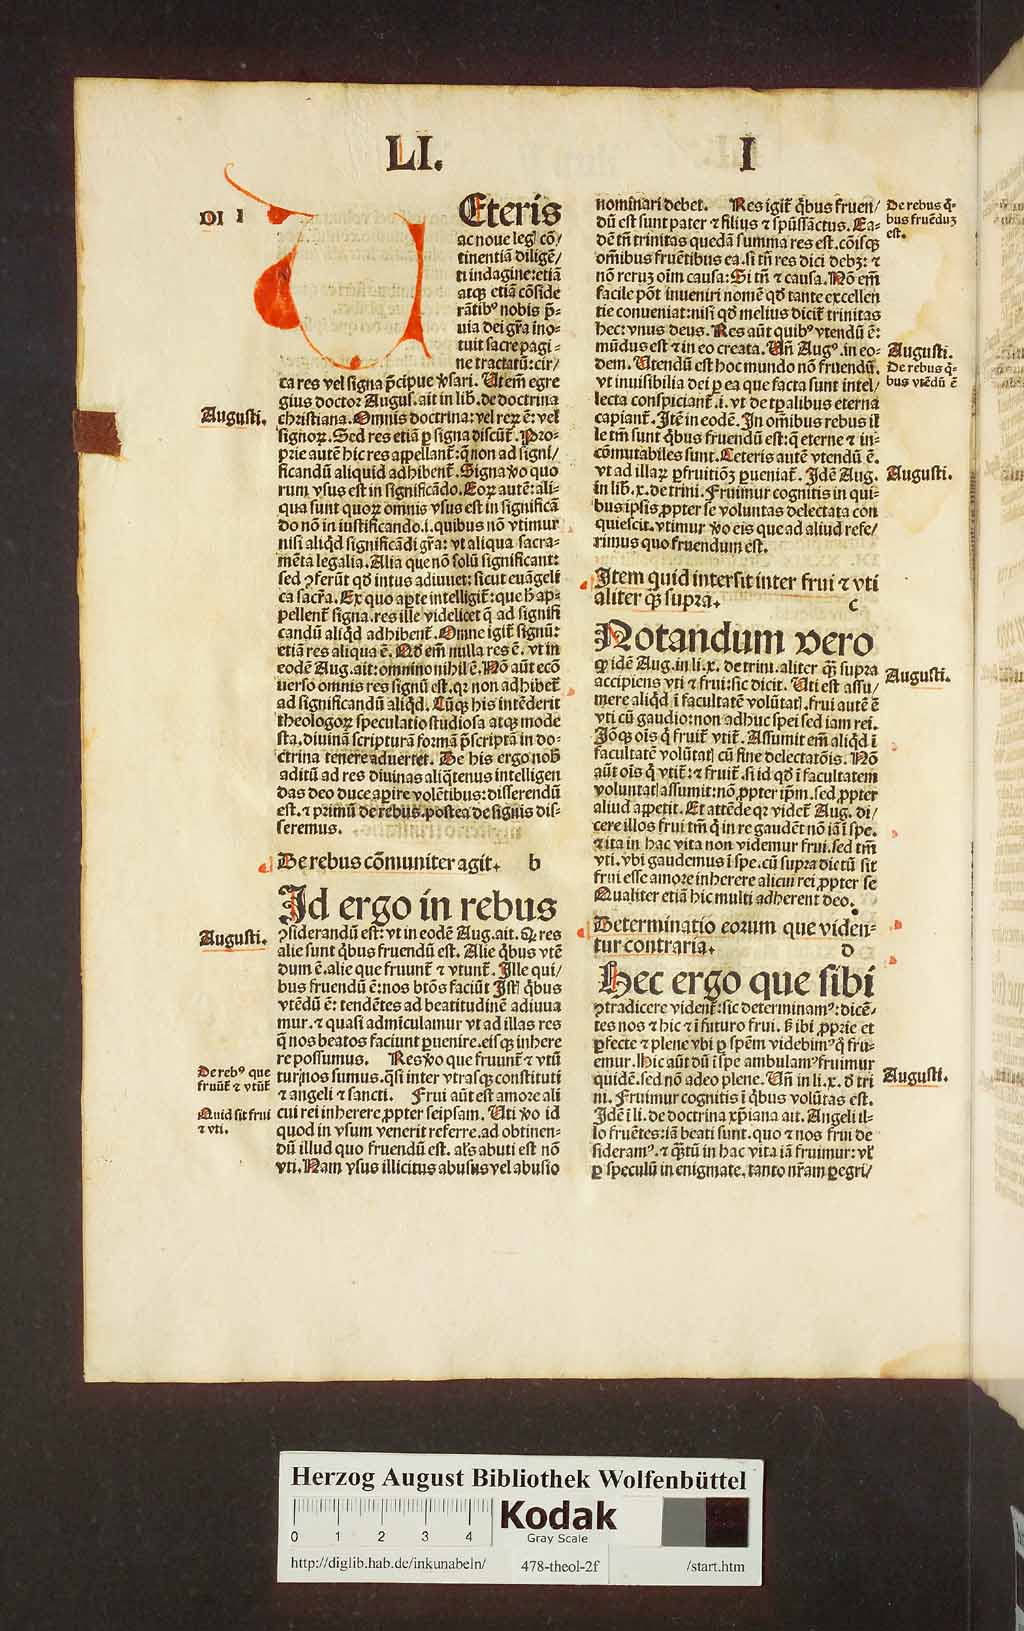 LI. I
DI I
Eteris
ac noue leg̃ cõ/
tinentiã diligẽ/
ti indagine: etiã
atqꝫ etiã cõside
rãtibꝰ nobis p̃-
uia dei gr̃a ino-
tuit sacre pagi-
ne tractatũ: cir/
ca res vel signa p̃cipue ṽsari. Utem̃ egre
gius doctor Augus. ait in lib. de doctrina
christiana. Omnis doctrina: vel reꝝ ẽ: vel
signoꝝ. Sed res etiã ꝑ signa discũt̃. Pro-
prie autẽ hic res appellant̃: q̃ non ad signi/
ficandũ aliquid adhibent̃. Signa ṽo quo
rum vsus est in significãdo. Eoꝝ autẽ: ali-
qua sunt quoꝝ omnis vsus est in significã
do nõ in iustificando. i. quibus nõ vtimur
nisi aliqd̃ significãdi gr̃a: vt aliqua sacra-
mẽta legalia. Alia que nõ solũ significant:
sed ꝯferũt qd̃ intus adiuuet: sicut euãgeli
ca sacr̃a. Ex quo apte intelligit̃: que h̃ ap-
pellent̃ signa. res ille videlicet q̃ ad signifi
candũ aliqd̃ adhibent̃. Omne igit̃ signũ:
etiã res aliqua ẽ. Qd̃ em̃ nulla res ẽ. vt in
eodẽ Aug. ait: omnino nihil ẽ. Nõ aũt ecõ
uerso omnis res signũ est. qꝛ non adhibet̃
ad significandũ aliqd̃. Cũqꝫ his intẽderit
theologoꝝ speculatio studiosa atqꝫ mode
sta. diuinã scripturã formã p̃scriptã in do-
ctrina tenere aduertet. De his ergo nob̃
aditũ ad res diuinas aliq̃tenus intelligen
das deo duce aperire volẽtibus: disserendũ
est. ⁊ primũ de rebus. postea de signis dis-
seremus.
De rebus cõmuniter agit. b
Id ergo in rebus
ꝯsiderandũ est: vt in eodẽ Aug. ait. Qꝛ res
alie sunt q̃bus fruendũ est. Alie q̃bus vtẽ
dum ẽ. alie que fruunt̃ ⁊ vtunt̃. Ille qui/
bus fruendũ ẽ: nos bt̃os faciũt Ist̃ q̃bus
vtẽdũ ẽ: tendẽtes ad beatitudinẽ adiuua
mur. ⁊ quasi admĩculamur vt ad illas res
q̃ nos beatos faciunt ꝑuenire. eisqꝫ inhere
re possumus. Res ṽo que fruunt̃ ⁊ vtũ
tur: nos sumus. q̃si inter vtrasqꝫ constituti
⁊ angeli ⁊ sancti. Frui aũt est amore ali
cui rei inherere ꝓpter seipsam. Uti ṽo id
quod in vsum venerit referre. ad obtinen-
dũ illud quo fruendũ est. al̃s abuti est nõ
vti. Nam vsus illicitus abusus vel abusio
Augusti.
Augusti.
De rebꝰ que
fruũt̃ ⁊ vtũt̃
Quid sit frui
⁊ vti.
nominari debet. Res igit̃ q̃bus fruen/
dũ est sunt pater ⁊ filius ⁊ sp̃ussãctus. Ea-
dẽ tñ trinitas quedã summa res est. cõisqꝫ
oĩbus fruẽtibus ea. si tñ res dici debꝫ: ⁊
nõ rerum oĩm causa: Si tñ ⁊ causa. Nõ em̃
facile põt inueniri nomẽ qd̃ tante excellen
tie conueniat: nisi qd̃ melius dicit̃ trinitas
hec: vnus deus. Res aũt quibꝰ vtendũ ẽ:
mũdus est ⁊ in eo creata. Uñ Augꝰ. in eo-
dem. Utendũ est hoc mundo nõ fruendũ.
vt inuisibilia dei ꝑ ea que facta sunt intel/
lecta conspiciant̃. i. vt de tp̃alibus eterna
capiant̃. Itẽ in eodẽ. In oĩbus rebus il
le tm̃ sunt q̃bus fruendũ est: q̃ eterne ⁊ in-
cõmutabiles sunt. Ceteris autẽ vtendũ ẽ.
vt ad illaꝝ ꝑfruitiõꝫ ꝑueniat̃. Idẽ Aug.
in lib. x. de trini. Fruimur cognitis in qui-
bus ipsis ꝓpter se voluntas delectata con
quiescit. vtimur ṽo eis que ad aliud refe/
rimus quo fruendum est.
Item quid intersit inter frui ⁊ vti
aliter q̃ꝫ supra. c
Notandum vero
ꝙ idẽ Aug. in li. x. de trini. aliter q̃ꝫ supra
accipiens vti ⁊ frui: sic dicit. Uti est assu/
mere aliqd̃ ĩ facultatẽ volũtat̃. frui autẽ ẽ
vti cũ gaudio: non adhuc spei sed iam rei.
Iõqꝫ oĩs q̃ fruit̃ vtit̃. Assumit em̃ aliqd̃ ĩ
facultatẽ volũtat̃ cũ fine delectatõis. Nõ
aũt oĩs q̃ vtit̃: ⁊ fruit̃. si id qd̃ ĩ facultatem
voluntat̃ assumit: nõ ꝓpter ip̃m. sed ꝓpter
aliud appetit. Et attẽde qꝛ videt̃ Aug. di/
cere illos frui tm̃ q̃ in re gaudẽt nõ iã ĩ spe.
⁊ ita in hac vita non videmur frui. sed tm̃
vti. vbi gaudemus ĩ spe. cũ supra dictũ sit
frui esse amore inherere alicui rei ꝓpter se
Qualiter etiã hic multi adherent deo.
Determinatio eorum que viden-
tur contraria. D
Hec ergo que sibi
ꝯtradicere vident̃: sic determinamꝰ: dicẽ-
tes nos ⁊ hic ⁊ ĩ futuro frui. s̃ ibi ꝓprie et
ꝑfecte ⁊ plene vbi ꝑ spẽm videbimꝰ q̃ fru-
emur. Hic aũt dũ ĩ spe ambulamꝰ fruimur
quidẽ. sed nõ adeo plene. Uñ in li. x. d̃ tri
ni. Fruimur cognitis ĩ q̃bus volũtas est.
Idẽ ĩ li. de doctrina xp̃iana ait. Angeli il-
lo fruẽtes: iã beati sunt. quo ⁊ nos frui de
sideramꝰ. ⁊ q̃tũ in hac vita iã fruimur: vl̃
ꝑ speculũ in enigmate. tanto nr̃am ꝑegri/
De rebus q̃-
bus fruẽduꝫ
est.
Augusti.
De rebus q̃-
bus vtẽdũ ẽ
Augusti.
Augusti.
Augusti.
Herzog August Bibliothek Wolfenbüttel
0 1 2 3 4
Kodak
Gray Scale
http://diglib.hab.de/inkunabeln/ 478-theol-2f /start.htm